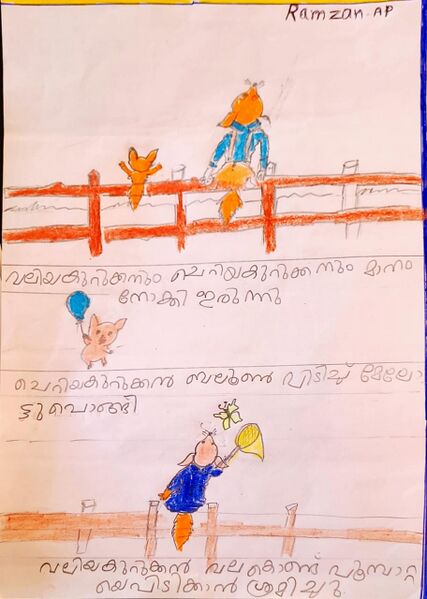 Ramzan. AP
വലിയകുറുക്കനും ചെറിയകുറുക്കനും മാനം
നോക്കി ഇരുന്നു
ചെറിയകുറുക്കൻ ബലൂൺ പിടിച്ച് മേലോ
ട്ടുപൊങ്ങി
വലിയകുറുക്കൻ വലകൊണ്ട് പൂമ്പാറ്റ
യെപിടിക്കാൻ ശ്രമിച്ചു.